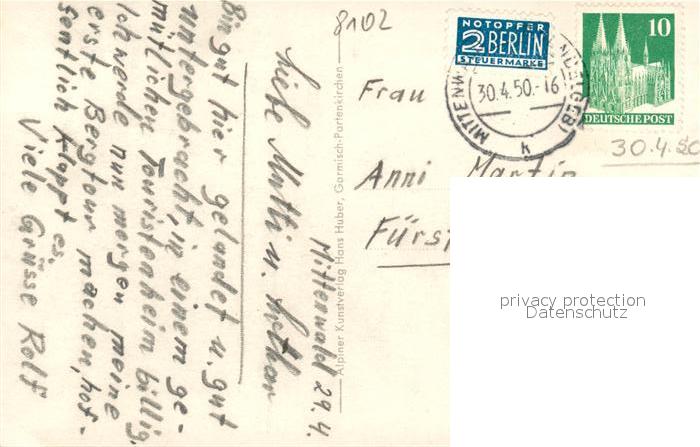 8102
Mittenwald 29.4.
Liebe Mutti u.
Bin gut hier gelandet u. gut
untergebracht, in einem ge-
mütlichen Touristenheim billig.
Ich werde nun morgen meine
erste Bergtour machen, hof-
fentlich klappt es.
Viele Grüsse Rolf
Alpiner Kunstverlag Hans Huber, Garmisch-Partenkirchen
NOTOPFER
2 BERLIN
STEUERMARKE
10
DEUTSCHE POST
30.4.50.-16
k
30.4.50
Frau
Anni Martin
Fürst
privacy protection
Datenschutz